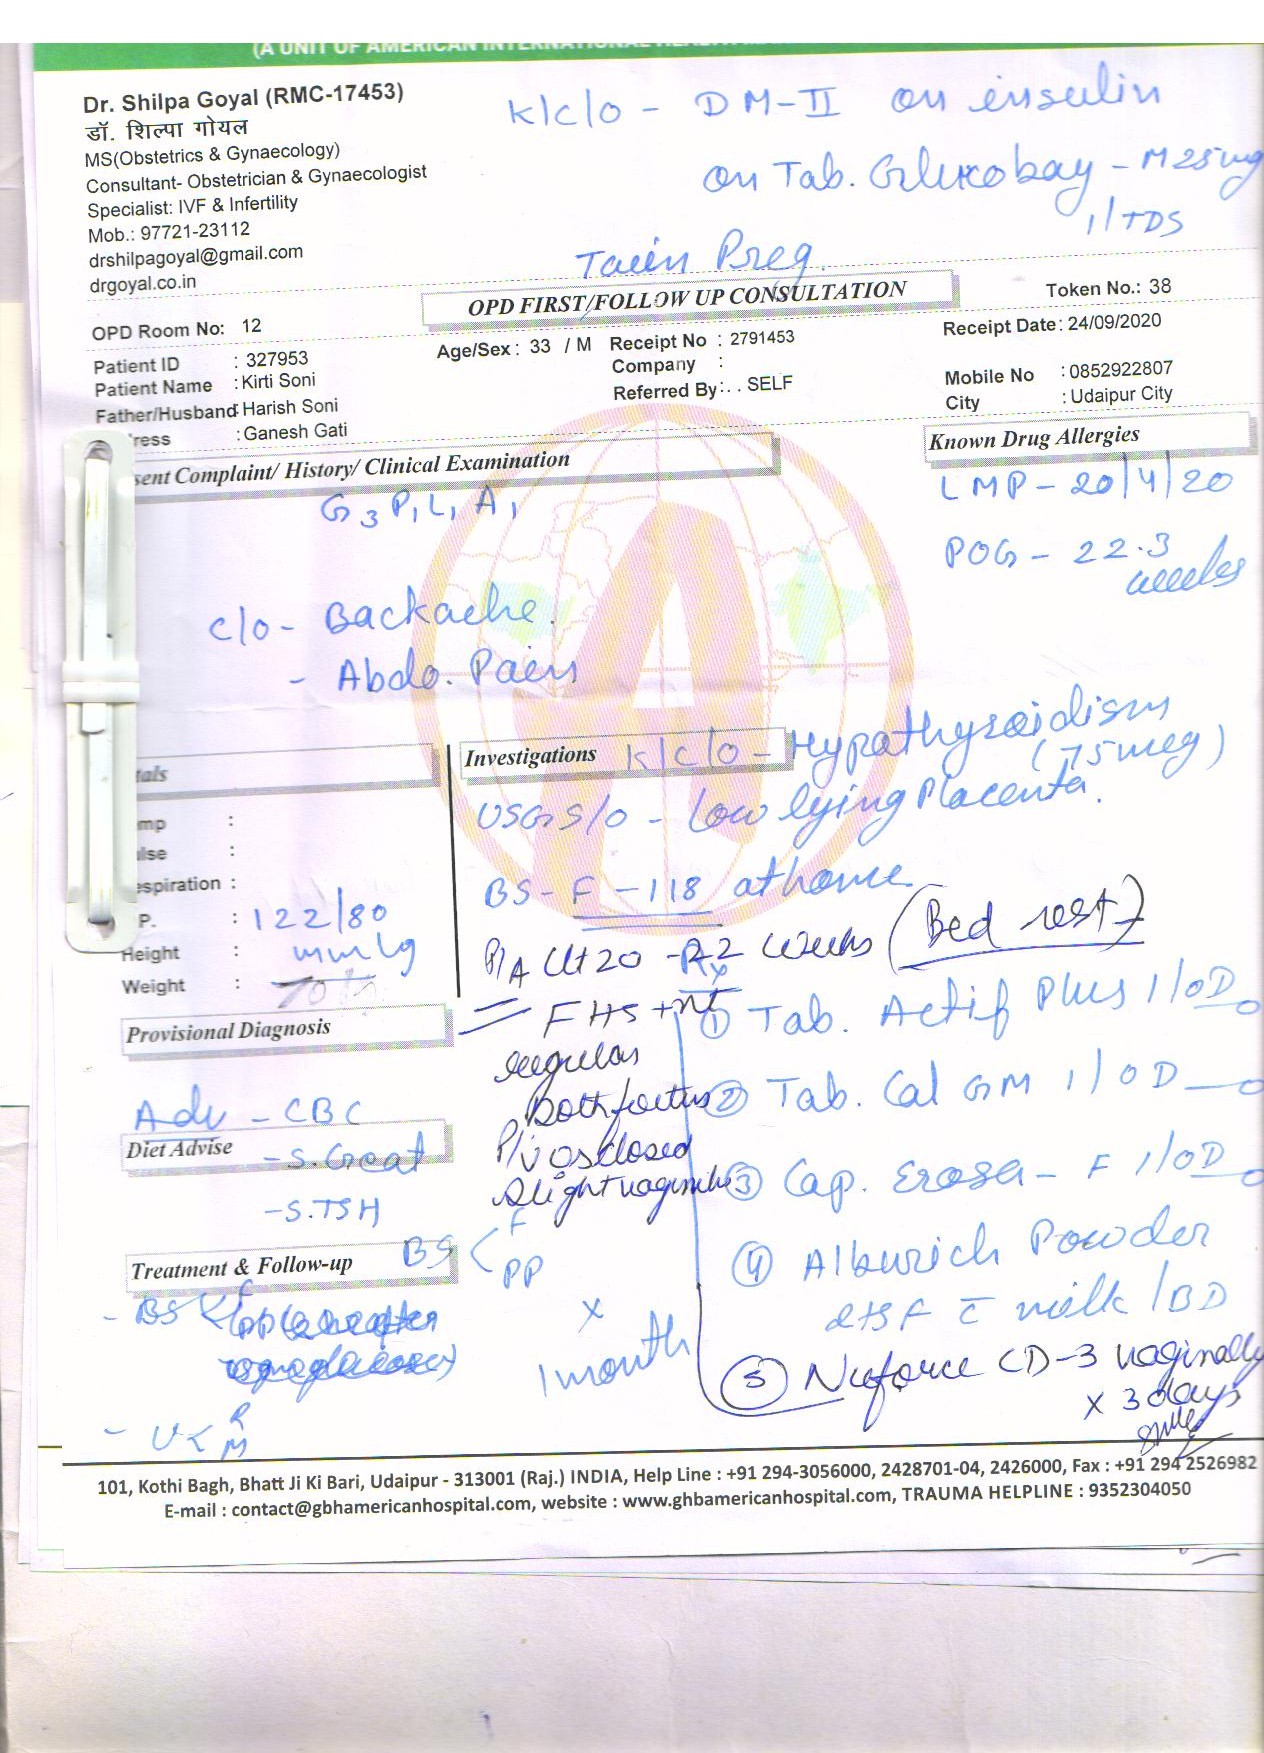 (A UNIT OF AMERICAN INTERNATIONAL HEALTH
Dr. Shilpa Goyal (RMC-17453)
डॉ. शिल्पा गोयल
MS(Obstetrics & Gynaecology)
Consultant- Obstetrician & Gynaecologist
Specialist: IVF & Infertility
Mob.: 97721-23112
drshilpagoyal@gmail.com
drgoyal.co.in
K/c/o - DM-II on insulin
on Tab. Glucobay - M 25mg
1/TDS
Twin Preg.
OPD FIRST/FOLLOW UP CONSULTATION
Token No.: 38
OPD Room No: 12
Age/Sex : 33 / M Receipt No : 2791453
Receipt Date: 24/09/2020
Patient ID : 327953
Company :
Patient Name : Kirti Soni
Referred By: . . SELF
Mobile No : 0852922807
Father/Husband: Harish Soni
City : Udaipur City
ress : Ganesh Gati
sent Complaint/ History/ Clinical Examination
Known Drug Allergies
G3 P1 L1 A1
LMP - 20/4/20
POG - 22.3 weeks
c/o - Backache.
- Abdo. Pain
Investigations
K/c/o - Hypothyroidism
(75mcg)
USG S/O - Low lying Placenta.
BS - F - 118 at home.
P/A Ut 20 - 22 weeks (Bed rest)
FHS +nt
regular
Both foetus
P/V os closed
tals
mp :
lse :
espiration :
.P. : 122/80
mmHg
Height :
Weight :
Provisional Diagnosis
Adv - CBC
Diet Advise
- S. Creat
- S. TSH
Treatment & Follow-up
BS < F
PP
x
1 month
- BS <
- U < R
M
Rx
① Tab. Actif Plus 1/OD
② Tab. Cal GM 1/OD
③ Cap. Erosa - F 1/OD
④ Alburich Powder
2tsf c̄ milk /BD
⑤ Nuforce CD-3 vaginally
x 3 days
101, Kothi Bagh, Bhatt Ji Ki Bari, Udaipur - 313001 (Raj.) INDIA, Help Line : +91 294-3056000, 2428701-04, 2426000, Fax : +91 294 2526982
E-mail : contact@gbhamericanhospital.com, website : www.ghbamericanhospital.com, TRAUMA HELPLINE : 9352304050